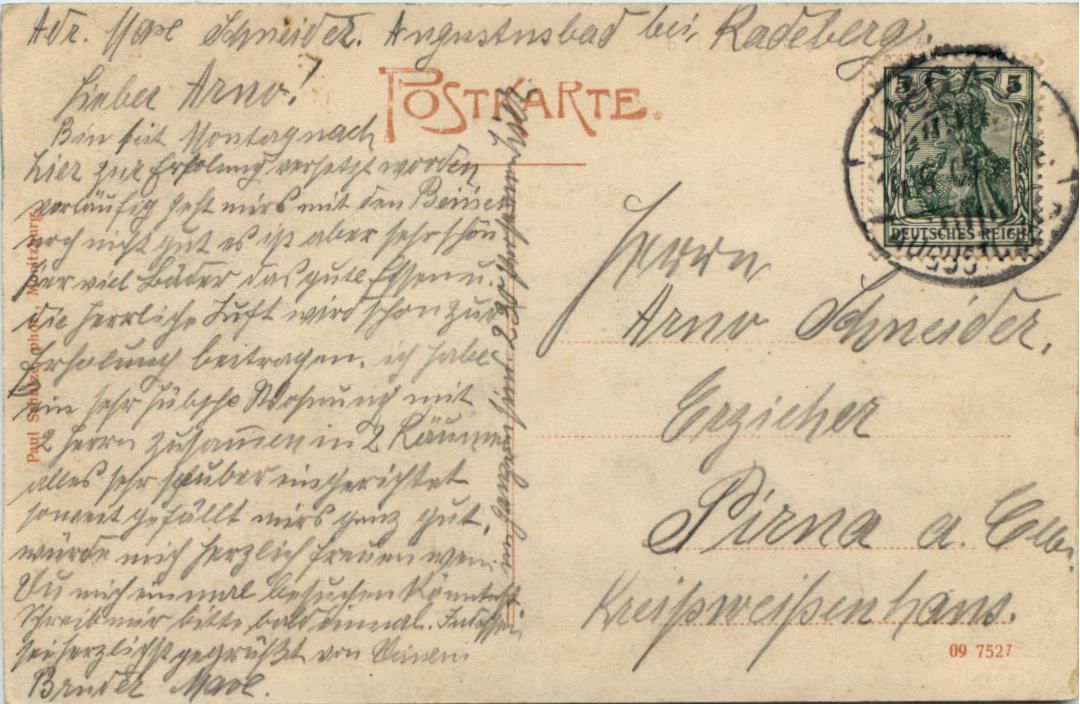 Adr. Max Schneider. Augustusbad bei Radeberg.
Lieber Arno!
Bin seit Montagnach
hier zur Erholung versetzt worden
vorläufig geht mirs mit den Beinen
noch nicht gut es ist aber sehr schön
hier viel Bäder das gute Essen u.
die herrliche Luft wird schon zur
Erholung beitragen. ich habe
ein sehr hübsche Wohnung mit
2 Herrn zusammen in 2 Räumen
alles sehr sauber eingerichtet
soweit gefällt mirs ganz gut,
würde mich herzlich freuen wen
Du mich einmal besuchen könntest
Schreib mir bitte bald einmal. Indessen
sei herzlichst gegrüßt von Deinem
Bruder Max.
im ganzen sind 220 Personen hier
POSTKARTE.
5 5
DEUTSCHES REICH
Herrn
Arno Schneider,
Erzieher
Pirna a. Elbe.
Kreißweißenhaus.
09 7527
Paul Schulze, phot., Moritzburg.